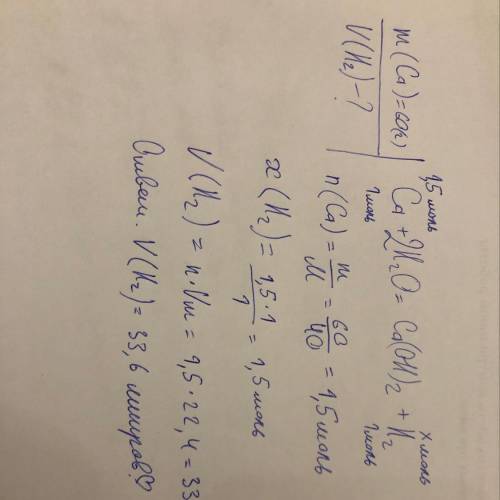 m(Ca)=60(г)
V(H₂)-?
1,5 моль х моль
Ca + 2H₂O = Ca(OH)₂ + H₂
1 моль 1 моль
n(Ca) = m/M = 60/40 = 1,5 моль
x(H₂) = 1,5·1/1 = 1,5 моль
V(H₂) = n·Vm = 1,5·22,4 = 33
Ответ. V(H₂) = 33,6 литров♡